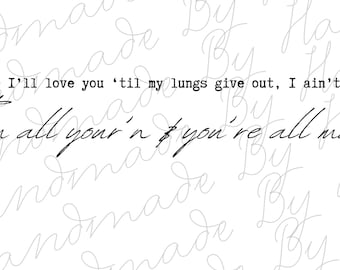 I'll love you 'til my lungs give out, I ain't
all your'n & you're all
Handmade By